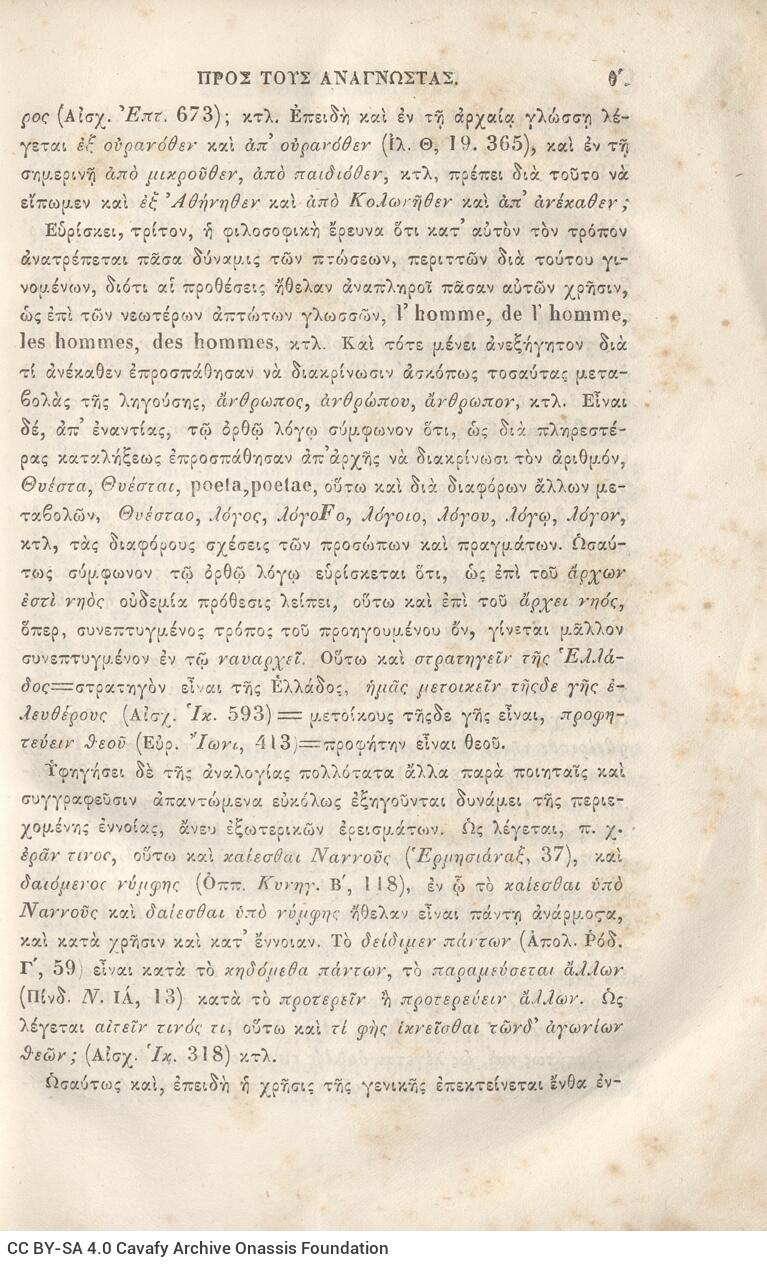 ΠΡΟΣ ΤΟΥΣ ΑΝΑΓΝΩΣΤΑΣ. θ΄.
ρος (Αἰσχ. Ἑπτ. 673); κτλ. Ἐπειδὴ καὶ ἐν τῇ ἀρχαίᾳ γλώσσῃ λέ-
γεται ἐξ οὐρανόθεν καὶ ἀπ' οὐρανόθεν (Ἰλ. Θ, 19. 365), καὶ ἐν τῇ
σημερινῇ ἀπὸ μικροῦθεν, ἀπὸ παιδιόθεν, κτλ, πρέπει διὰ τοῦτο νὰ
εἴπωμεν καὶ ἐξ Ἀθήνηθεν καὶ ἀπὸ Κολωνῆθεν καὶ ἀπ' ἀνέκαθεν;
Εὑρίσκει, τρίτον, ἡ φιλοσοφικὴ ἔρευνα ὅτι κατ' αὐτὸν τὸν τρόπον
ἀνατρέπεται πᾶσα δύναμις τῶν πτώσεων, περιττῶν διὰ τούτου γι-
νομένων, διότι αἱ προθέσεις ἤθελαν ἀναπληροῖ πᾶσαν αὐτῶν χρῆσιν,
ὡς ἐπὶ τῶν νεωτέρων ἀπτώτων γλωσσῶν, l' homme, de l' homme,
les hommes, des hommes, κτλ. Καὶ τότε μένει ἀνεξήγητον διὰ
τί ἀνέκαθεν ἐπροσπάθησαν νὰ διακρίνωσιν ἀσκόπως τοσαύτας μετα-
βολὰς τῆς ληγούσης, ἄνθρωπος, ἀνθρώπου, ἄνθρωπον, κτλ. Εἶναι
δέ, ἀπ' ἐναντίας, τῷ ὀρθῷ λόγῳ σύμφωνον ὅτι, ὡς διὰ πληρεστέ-
ρας καταλήξεως ἐπροσπάθησαν ἀπ'ἀρχῆς νὰ διακρίνωσι τὸν ἀριθμόν,
Θυέστα, Θυέσται, poeta,poetae, οὕτω καὶ διὰ διαφόρων ἄλλων με-
ταβολῶν, Θυέσταο, λόγος, λόγοFο, λόγοιο, λόγου, λόγῳ, λόγον,
κτλ, τὰς διαφόρους σχέσεις τῶν προσώπων καὶ πραγμάτων. Ὡσαύ-
τως σύμφωνον τῷ ὀρθῷ λόγῳ εὑρίσκεται ὅτι, ὡς ἐπὶ τοῦ ἄρχων
ἐστὶ νηὸς οὐδεμία πρόθεσις λείπει, οὕτω καὶ ἐπὶ τοῦ ἄρχει νηός,
ὅπερ, συνεπτυγμένος τρόπος τοῦ προηγουμένου ὄν, γίνεται μᾶλλον
συνεπτυγμένον ἐν τῷ ναυαρχεῖ. Οὕτω καὶ στρατηγεῖν τῆς Ἑλλά-
δος=στρατηγὸν εἶναι τῆς Ἑλλάδος, ἡμᾶς μετοικεῖν τῆςδε γῆς ἐ-
λευθέρους (Αἰσχ. Ἱκ. 593)= μετοίκους τῆςδε γῆς εἶναι, προφη-
τεύειν θεοῦ (Εὐρ. Ἴωνι, 413)=προφήτην εἶναι θεοῦ.
Ὑφηγήσει δὲ τῆς ἀναλογίας πολλότατα ἄλλα παρὰ ποιηταῖς καὶ
συγγραφεῦσιν ἀπαντώμενα εὐκόλως ἐξηγοῦνται δυνάμει τῆς περιε-
χομένης ἐννοίας, ἄνευ ἐξωτερικῶν ἐρεισμάτων. Ὡς λέγεται, π. χ.
ἐρᾶν τινος, οὕτω καὶ καίεσθαι Ναννοῦς (Ἑρμησιάναξ, 37), καὶ
δαιόμενος νύμφης (Ὀππ. Κυνηγ. Β΄, 118), ἐν ᾧ τὸ καίεσθαι ὑπὸ
Ναννοῦς καὶ δαίεσθαι ὑπὸ νύμφης ἤθελαν εἶναι πάντη ἀνάρμοστα,
καὶ κατὰ χρῆσιν καὶ κατ' ἔννοιαν. Τὸ δείδιμεν πάντων (Ἀπολ. Ῥόδ.
Γ΄, 59) εἶναι κατὰ τὸ κηδόμεθα πάντων, τὸ παραμεύσεται ἄλλων
(Πίνδ. Ν. ΙΑ, 13) κατὰ τὸ προτερεῖν ἢ προτερεύειν ἄλλων. Ὡς
λέγεται αἰτεῖν τινός τι, οὕτω καὶ τί φῂς ἱκνεῖσθαι τῶνδ' ἀγωνίων
θεῶν; (Αἰσχ. Ἱκ. 318) κτλ.
Ὡσαύτως καί, ἐπειδὴ ἡ χρῆσις τῆς γενικῆς ἐπεκτείνεται ἔνθα ἐν-
CC BY-SA 4.0 Cavafy Archive Onassis Foundation